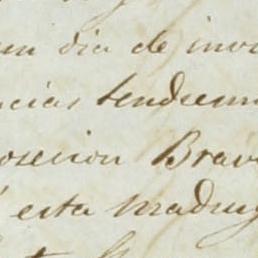 un dia de inv
ncias tendrem
osicion Brav
esta madrug